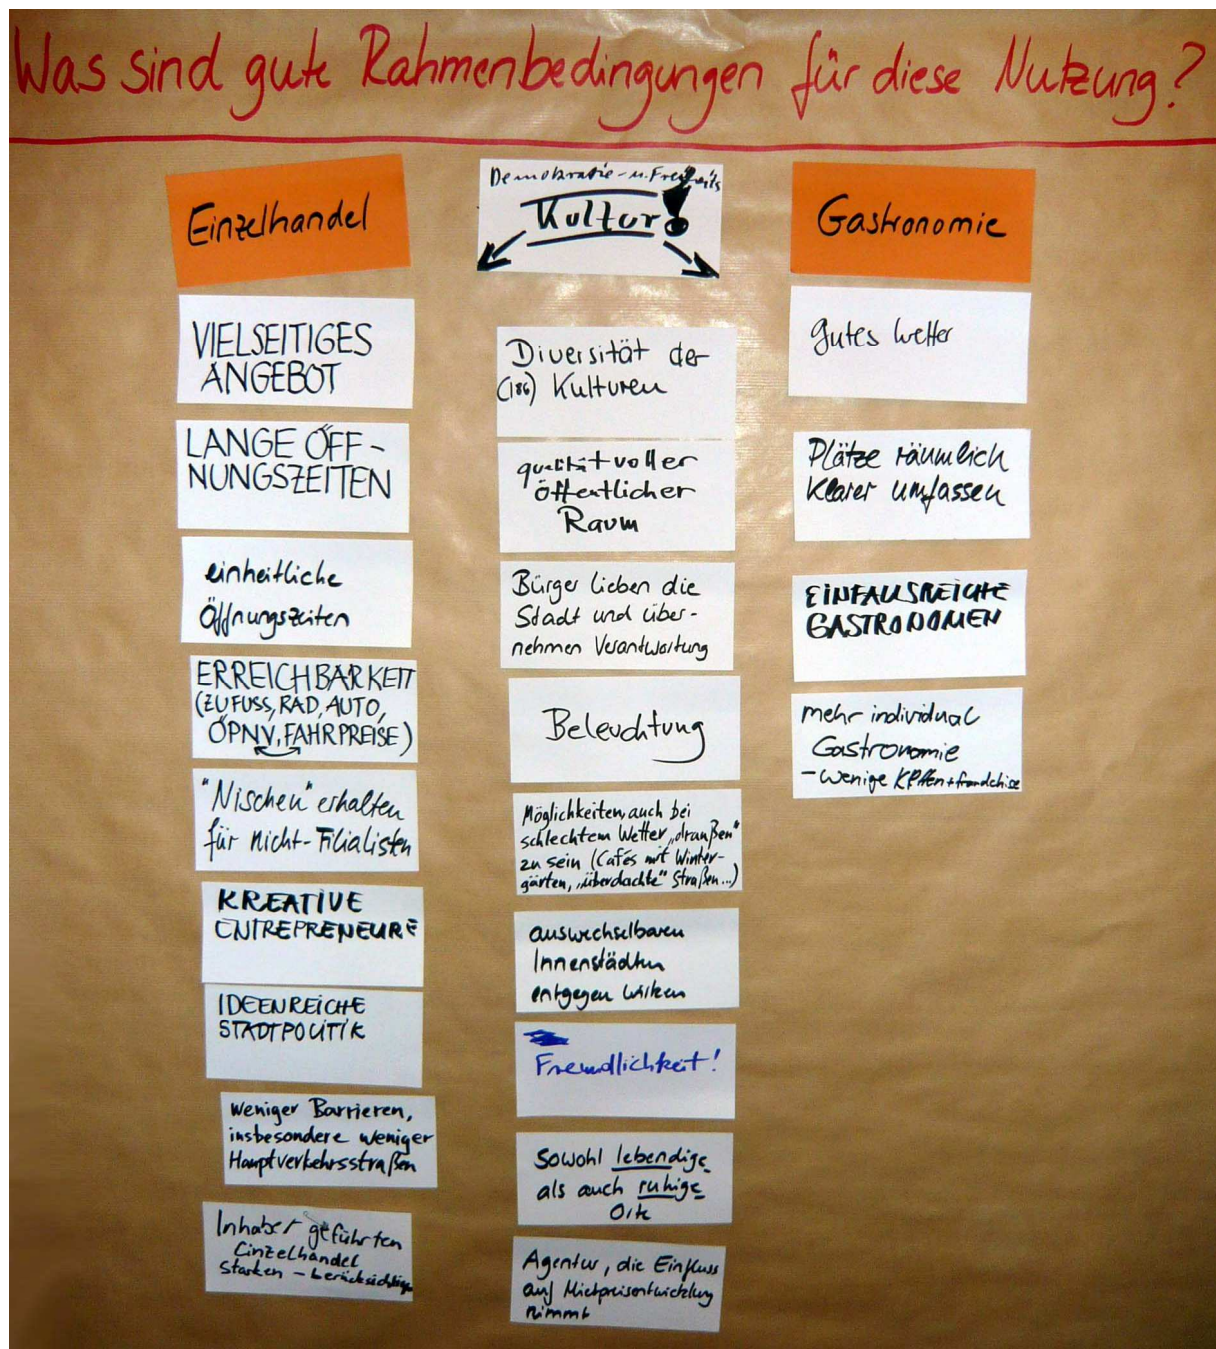 Was sind gute Rahmenbedingungen für diese Nutzung?
Einzelhandel
VIELSEITIGES
ANGEBOT
LANGE ÖFF-
NUNGSZEITEN
einheitliche
Öffnungszeiten
ERREICHBARKEIT
(ZU FUSS, RAD, AUTO,
ÖPNV, FAHRPREISE)
"Nischen" erhalten
für nicht-Filialisten
KREATIVE
ENTREPRENEURE
IDEENREICHE
STADTPOLITIK
weniger Barrieren,
insbesondere weniger
Hauptverkehrsstraßen
Inhaber geführten
Einzelhandel
starken – berücksichtigen
Demokratie- u. Freiheits
Kultur!
Diversität der
(186) Kulturen
qualitätvoller
öffentlicher
Raum
Bürger lieben die
Stadt und über-
nehmen Verantwortung
Beleuchtung
Möglichkeiten, auch bei
schlechtem Wetter „draußen"
zu sein (Cafés mit Winter-
gärten, „überdachte" Straßen...)
auswechselbaren
Innenstädten
entgegen wirken
Freundlichkeit!
Sowohl lebendige
als auch ruhige
Orte
Agentur, die Einfluss
auf Mietpreisentwicklung
nimmt
Gastronomie
gutes Wetter
Plätze räumlich
klarer umfassen
EINFALLSREICHE
GASTRONOMEN
mehr individual
Gastronomie
– wenige Ketten + franchise